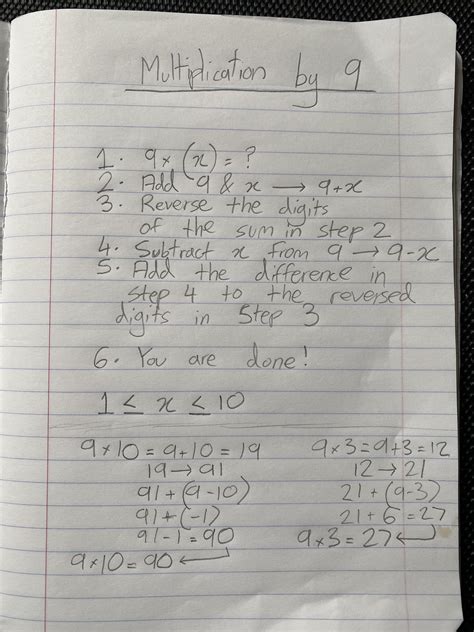 Multiplication by 9
1. 9 × (x) = ?
2. Add 9 & x → 9+x
3. Reverse the digits
of the sum in step 2
4. Subtract x from 9 → 9-x
5. Add the difference in
step 4 to the reversed
digits in Step 3
6. You are done!
1 ≤ x ≤ 10
9×10 = 9+10 = 19
19 → 91
91 + (9-10)
91 + (-1)
91 - 1 = 90
9×10 = 90 ←
9×3 = 9+3 = 12
12 → 21
21 + (9-3)
21 + 6 = 27
9×3 = 27 ←